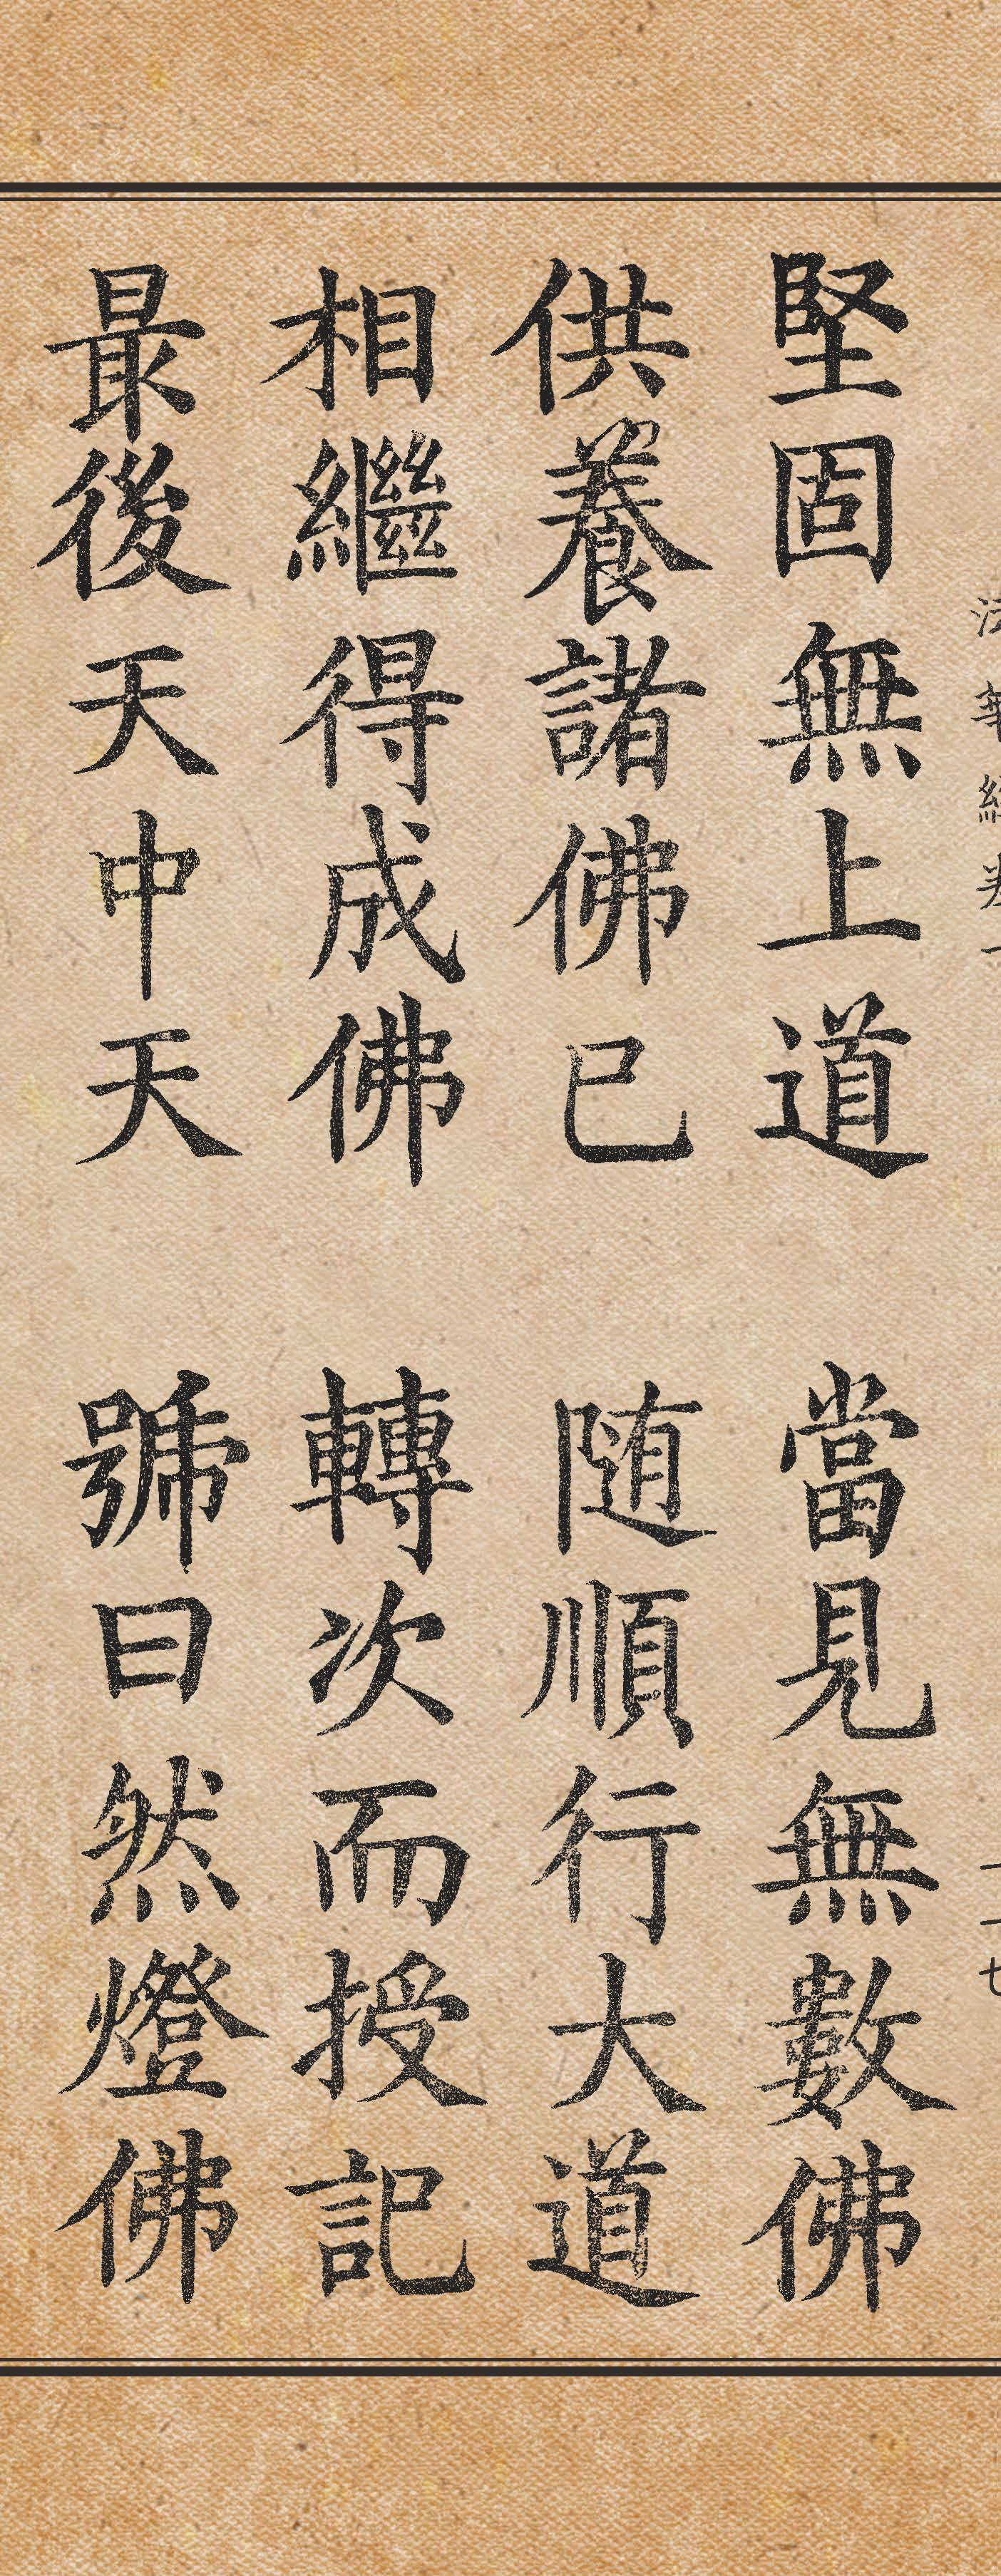 法華經卷一 二十七
堅固無上道 當見無數佛
供養諸佛已 随順行大道
相繼得成佛 轉次而授記
最後天中天 號曰然燈佛